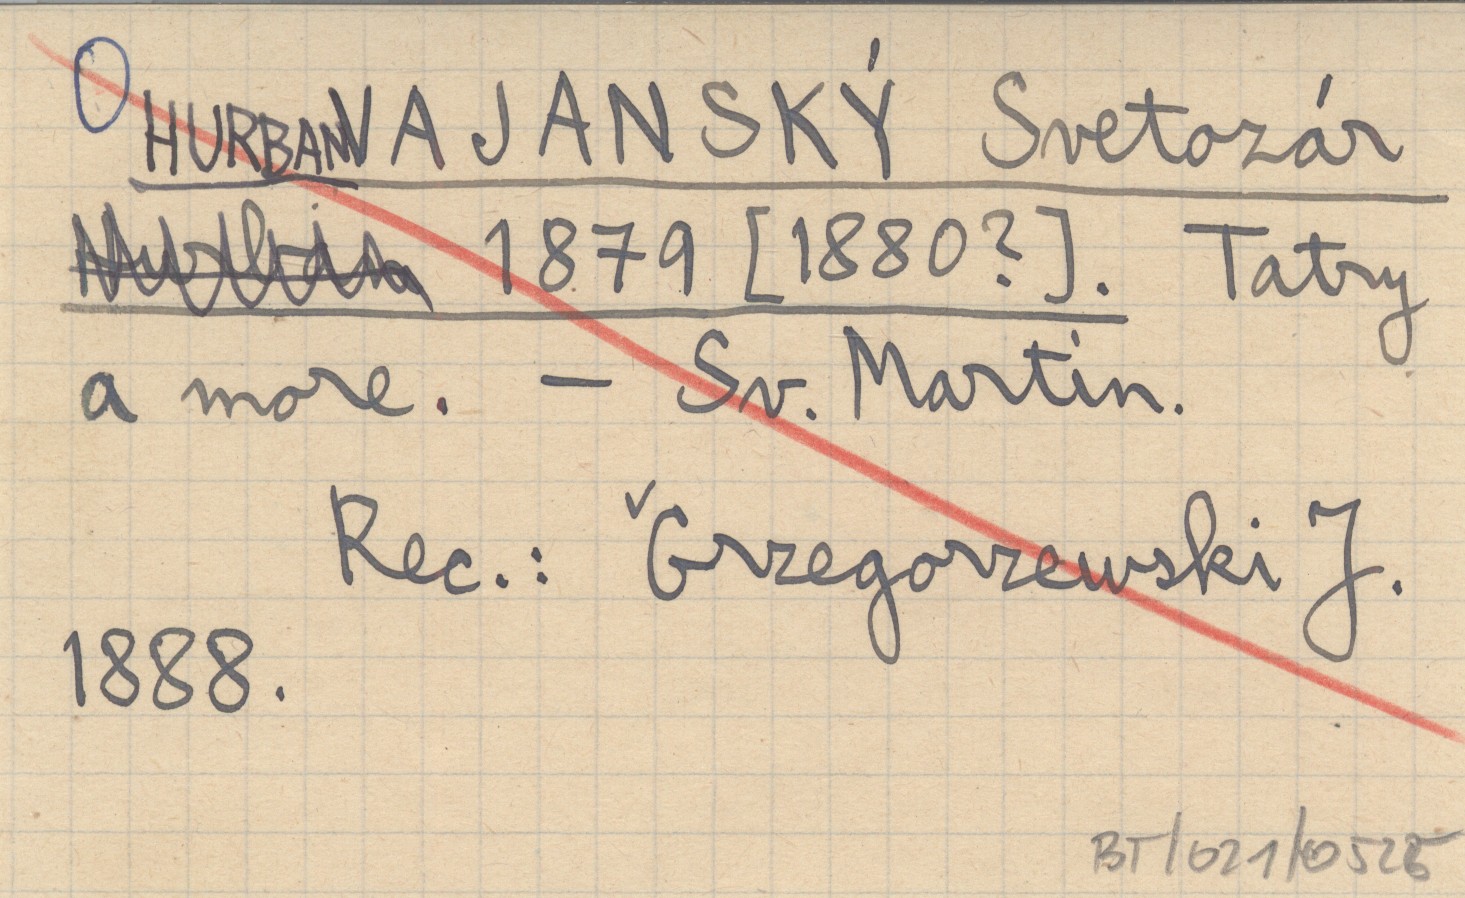 HURBAN VAJANSKÝ Svetozár
Hurban 1879 [1880?]. Tatry
a more. — Sv. Martin.
Rec.: ˇGrzegorzewski J.
1888.
BT/021/0525